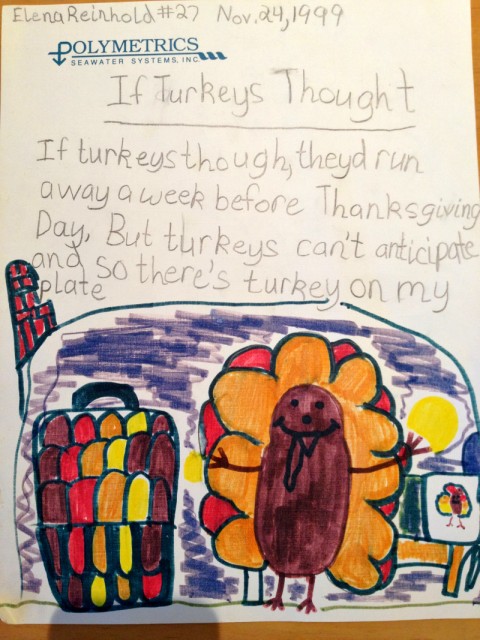 Elena Reinhold #27 Nov. 24, 1999
POLYMETRICS
SEAWATER SYSTEMS, INC
If Turkeys Thought
If turkeys though, theyd run
away a week before Thanksgiving
Day, But turkeys can't anticipate
and so there's turkey on my
plate